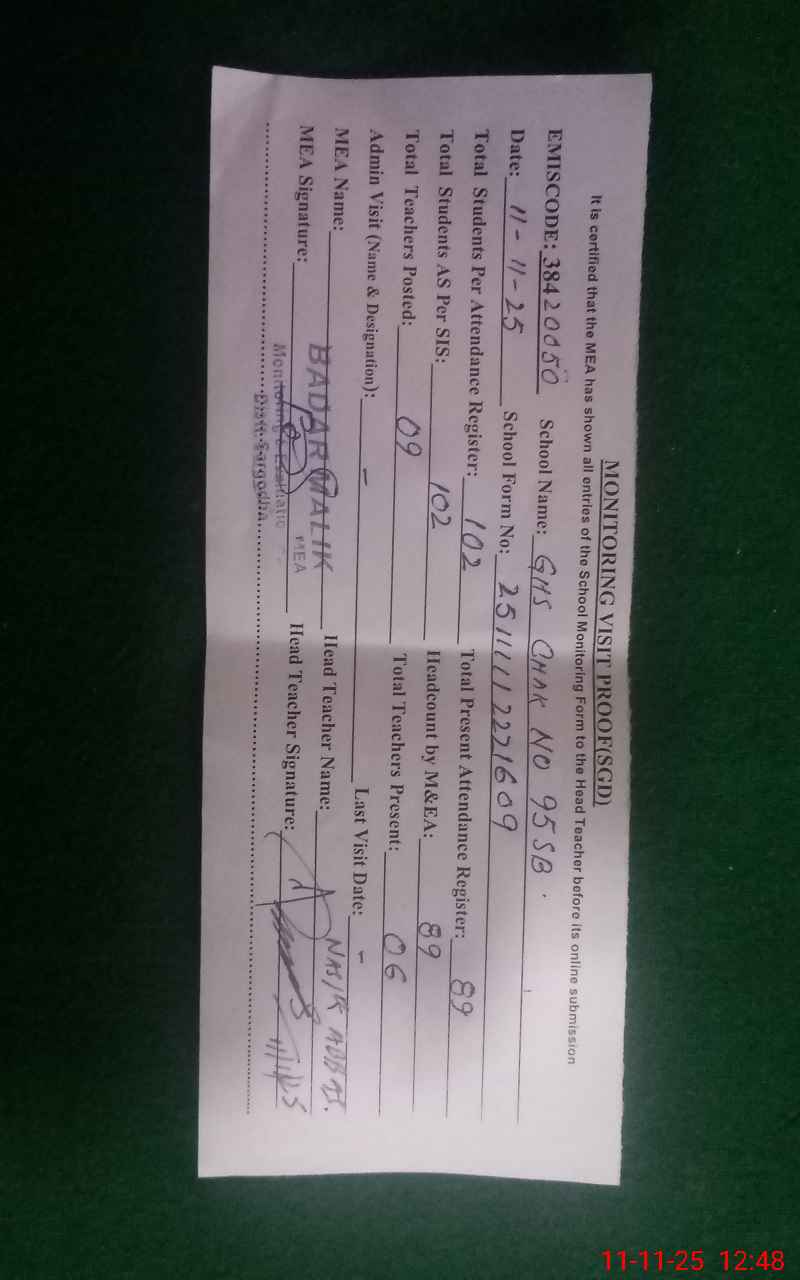 MONITORING VISIT PROOF(SGD)
It is certified that the MEA has shown all entries of the School Monitoring Form to the Head Teacher before its online submission
EMISCODE: 38420050 School Name: GHS CHAK NO 95 SB.
Date: 11-11-25 School Form No:
Total Students Per Attendance Register: 102 Total Present Attendance Register: 89
Total Students AS Per SIS: 102 Headcount by M&EA: 89
Total Teachers Posted: 09 Total Teachers Present: 06
Admin Visit (Name & Designation): - Last Visit Date: -
MEA Name: BADAR MALIK Head Teacher Name: NASIR
MEA Signature: MEA Head Teacher Signature: 11/11/25
Monitoring &
Distt: Sargodha.
11-11-25 12:48